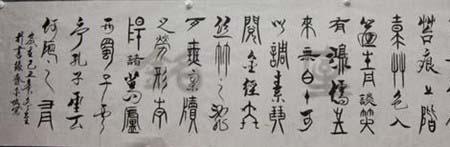 苔痕上階
綠草色入
簾青談笑
有鴻儒往
來無白丁可
以調素琴
閱金經無
絲竹之亂
耳無案牘
之勞形南
陽諸葛廬
西蜀子雲
亭孔子云
何陋之有